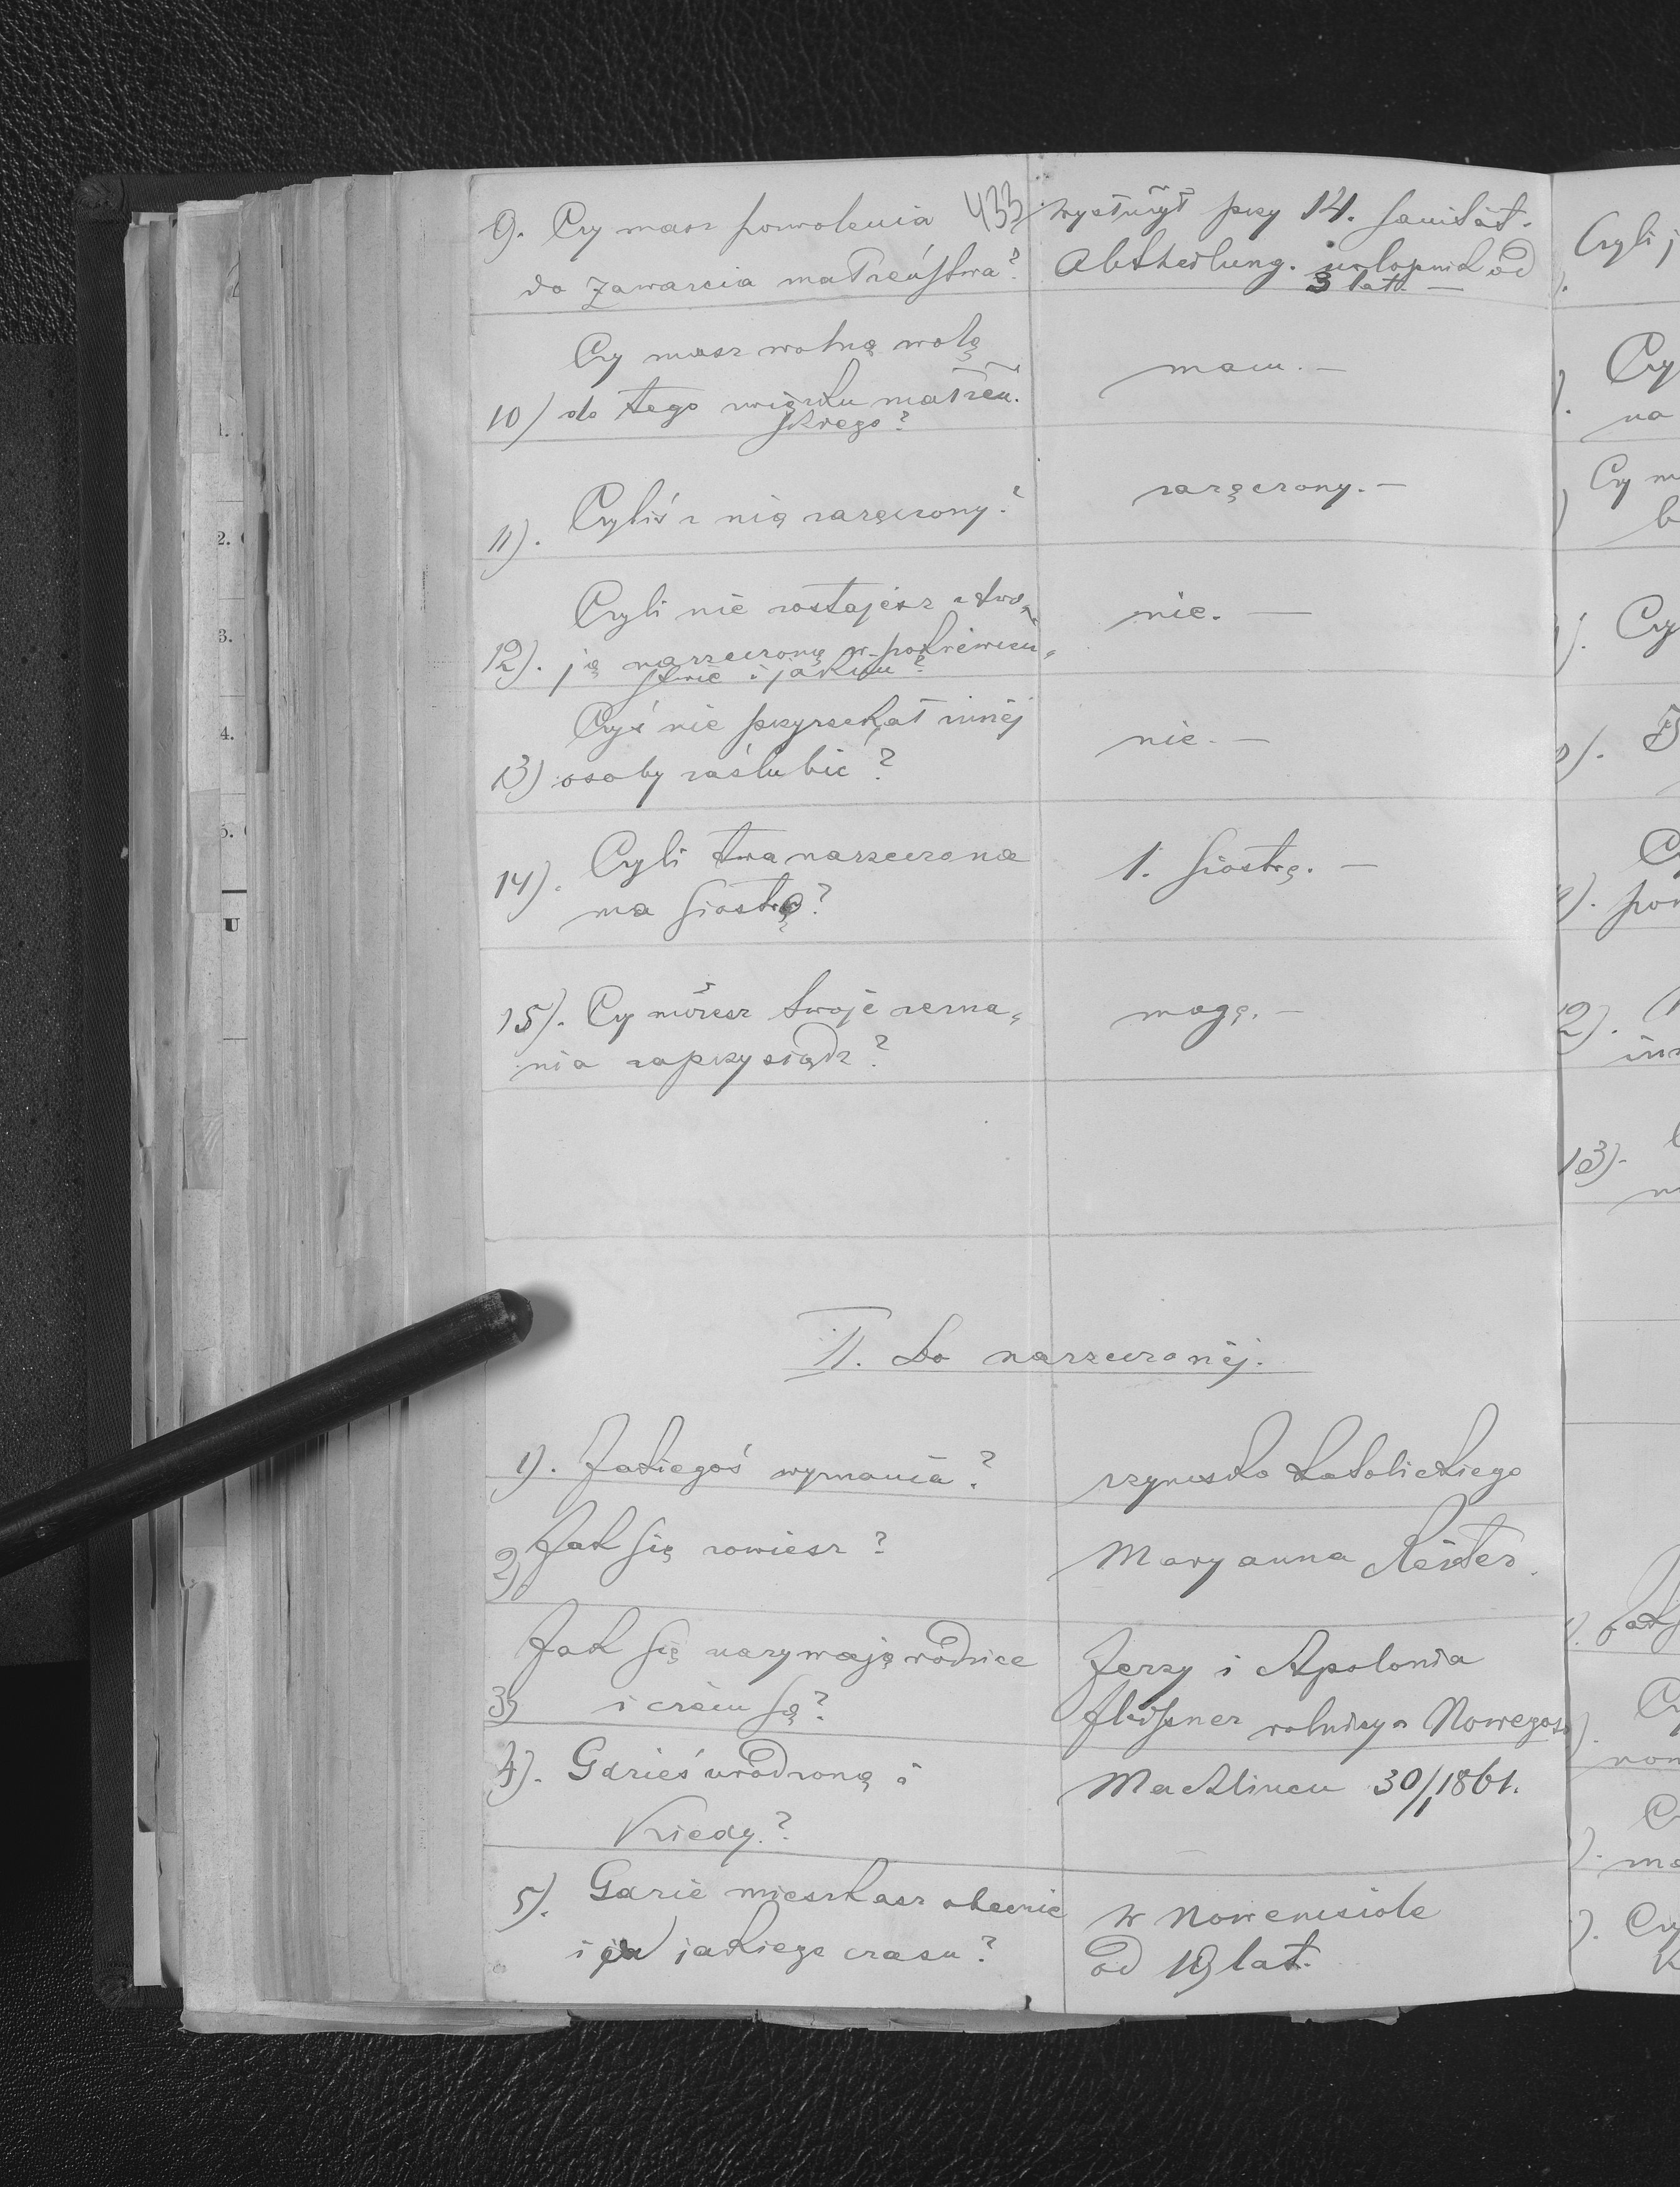 9. Czy masz pozwolenia 433
do zawarcia małżeństwa?
wysłużył przy 14. Sanität.
Abtheilung. urlopnik od
3 lat. —
Czy masz wolną wolę
10) do tego związku małżeń.
skiego?
mam. —
11). Czyliś z nią zaręczony?
zaręczony. —
Czyli nie zostajesz z two„
12). ją narzeczoną w pokrewień„
stwie i jakim?
nie. —
Czyś nie przyrzekał innéj
13) osoby zaślubić?
nie. —
14). Czyli twa narzeczona
ma siostrę?
1. siostrę. —
15). Czy możesz twoje zezna„
nia zaprzysiądz?
mogę. —
II. Do narzeczonéj.
1). Jakiegoś wyznania?
rzymsko katolickiego
2) Jak się zowiesz?
Maryanna
Jak się nazywają rodzice
3) i czém są?
Jerzy i Apolonia
rolnicy z Nowego
4). Gdzieś urodzoną i
kiedy?
30/1 1861.
5). Gdzie mieszkasz obecnie
i od jakiego czasu?
w Nowemsiole
od 19 lat.
Czyli j
Czy
na
Czy m
b
Czy
12).
13).
Czy